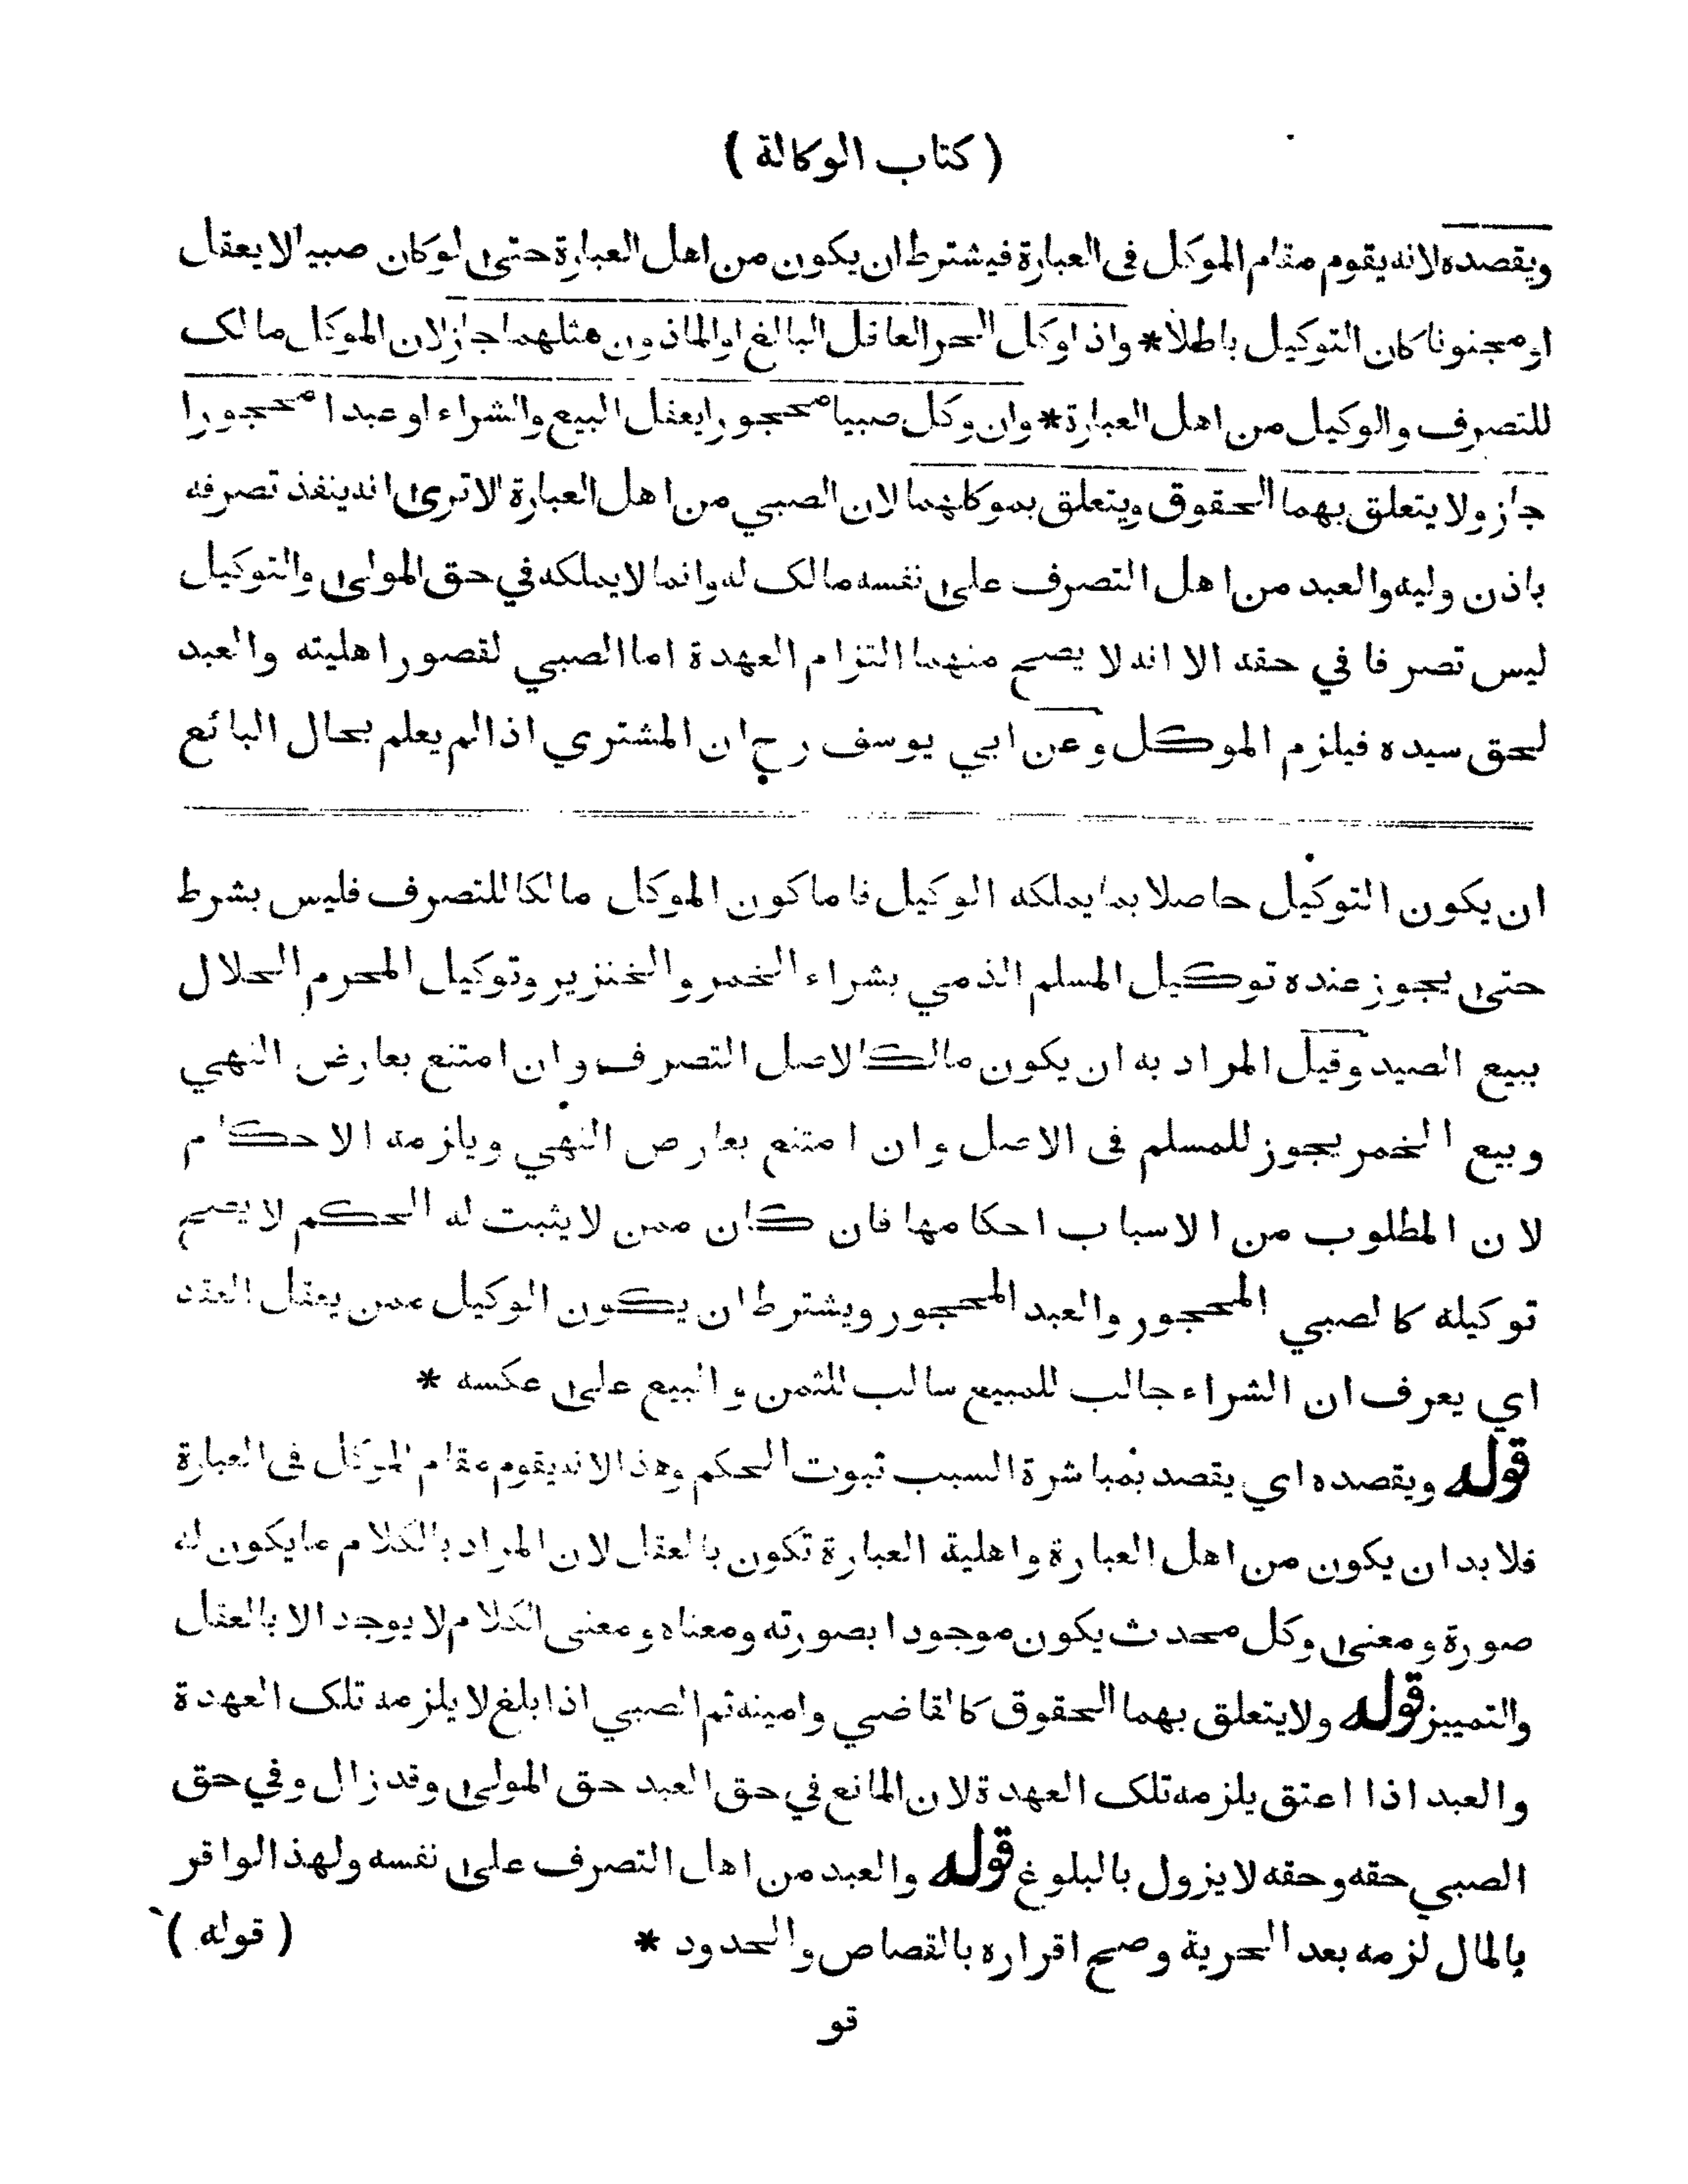 ( كتاب الوكالة )
ويقصده لانه يقوم مقام الموكل فى العبارة فيشترط ان يكون من اهل العبارة حتى لوكان صبيا لا يعقل
او مجنونا كان التوكيل باطلا * واذا وكل الحر العاقل البالغ او الماذون مثلهما جاز لان الموكل مالك
للتصرف والوكيل من اهل العبارة * وان وكل صبيا محجورا يعقل البيع والشراء او عبدا محجورا
جاز ولا يتعلق بهما الحقوق ويتعلق بموكلهما لان الصبي من اهل العبارة الا ترى انه ينفذ تصرفه
باذن وليه والعبد من اهل التصرف على نفسه مالك له وانما لا يملكه في حق المولى والتوكيل
ليس تصرفا في حقه الا انه لا يصح منهما التزام العهدة اما الصبي لقصور اهليته والعبد
لحق سيده فيلزم الموكل وعن ابي يوسف رح ان المشتري اذا لم يعلم بحال البائع
ان يكون التوكيل حاصلا بما يملكه الوكيل فاما كون الموكل مالكا للتصرف فليس بشرط
حتى يجوز عنده توكيل المسلم الذمي بشراء الخمر والخنزير وتوكيل المحرم الحلال
ببيع الصيد وقيل المراد به ان يكون مالكا لاصل التصرف وان امتنع بعارض النهي
وبيع الخمر يجوز للمسلم فى الاصل وان امتنع بعارض النهي ويلزمه الاحكام
لان المطلوب من الاسباب احكامها فان كان ممن لا يثبت له الحكم لا يصح
توكيله كالصبي المحجور والعبد المحجور ويشترط ان يكون الوكيل ممن يعقل العقد
اي يعرف ان الشراء جالب للمبيع سالب للثمن والبيع على عكسه *
قوله ويقصده اي يقصد بمباشرة السبب ثبوت الحكم وهذا لانه يقوم مقام الموكل فى العبارة
فلا بد ان يكون من اهل العبارة واهلية العبارة تكون بالعقل لان المراد بالكلام ما يكون له
صورة ومعنى وكل محدث يكون موجودا بصورته ومعناه ومعنى الكلام لا يوجد الا بالعقل
والتمييز قوله ولا يتعلق بهما الحقوق كالقاضي وامينه ثم الصبي اذا بلغ لا يلزمه تلك العهدة
والعبد اذا اعتق يلزمه تلك العهدة لان المانع في حق العبد حق المولى وقد زال وفي حق
الصبي حقه وحقه لا يزول بالبلوغ قوله والعبد من اهل التصرف على نفسه ولهذا لو اقر
بالمال لزمه بعد الحرية وصح اقراره بالقصاص والحدود *
( قوله )
قو